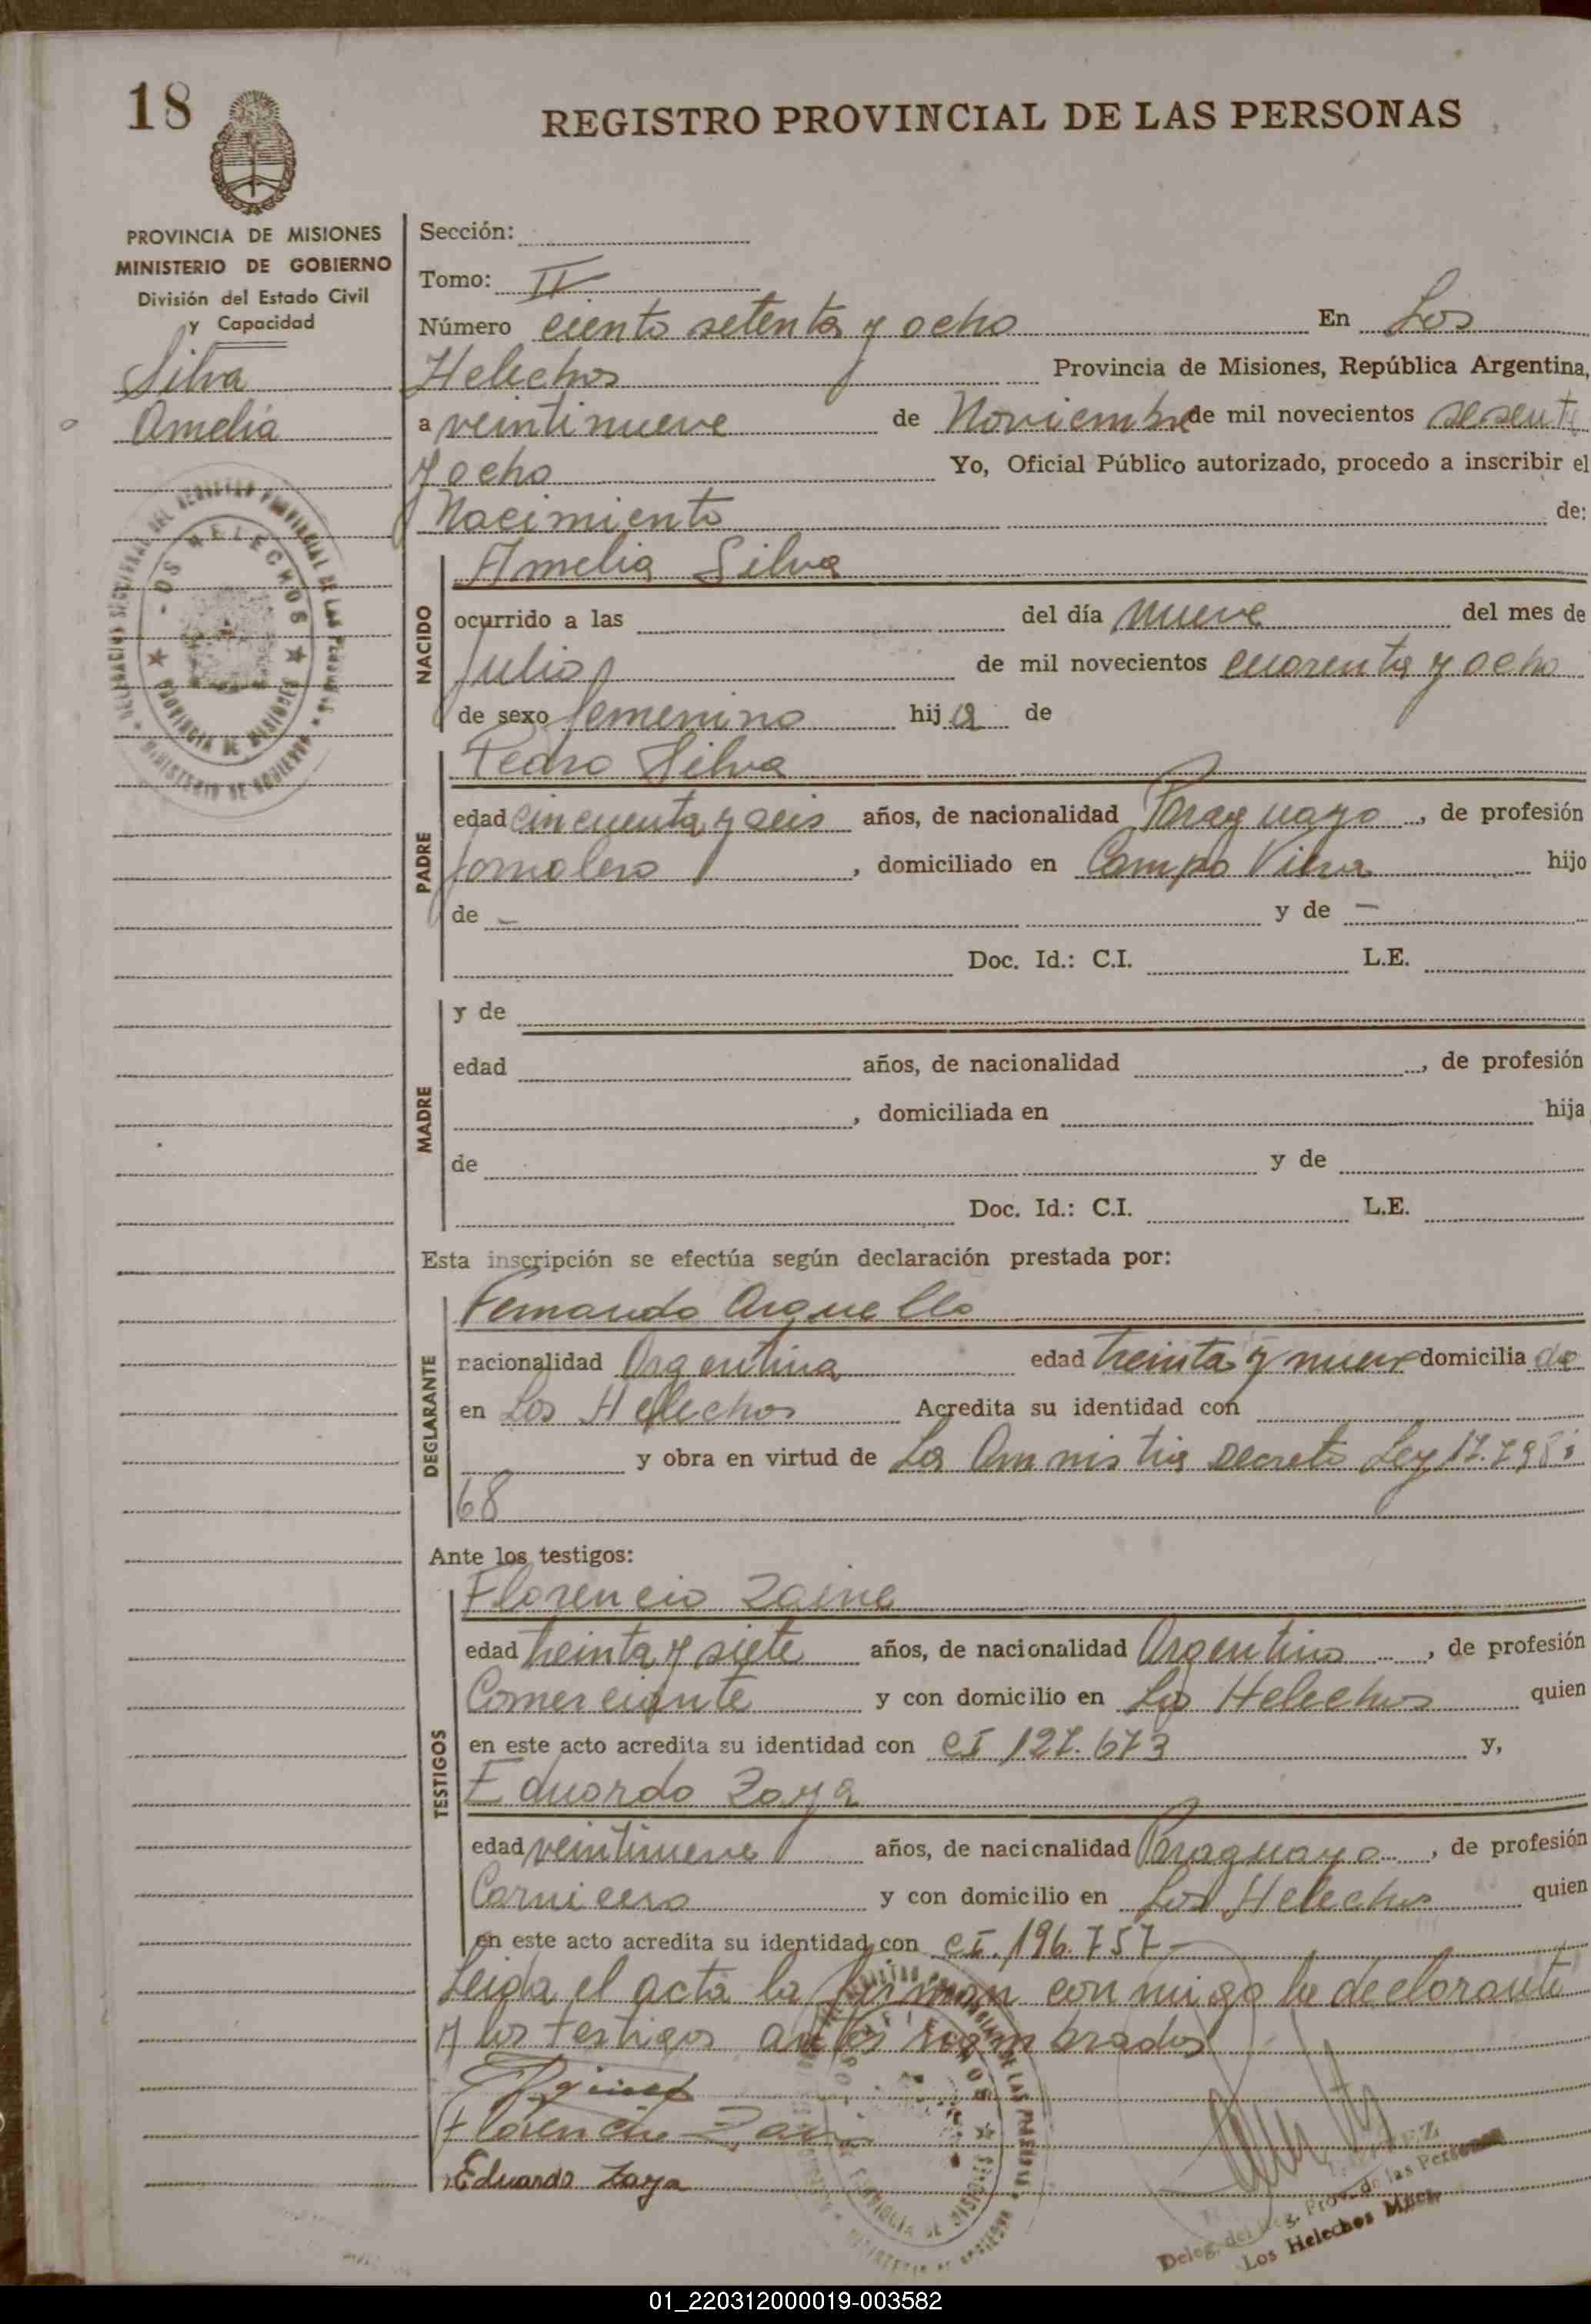 18
REGISTRO PROVINCIAL DE LAS PERSONAS
PROVINCIA DE MISIONES
MINISTERIO DE GOBIERNO
División del Estado Civil
y Capacidad
Silva
Amelia
Sección:
Tomo: IV
Número ciento setenta y ocho En Los
Helechos Provincia de Misiones, República Argentina,
a veintinueve de Noviembre de mil novecientos sesenta
y ocho Yo, Oficial Público autorizado, procedo a inscribir el
Nacimiento de:
NACIDO
Amelia Silva
ocurrido a las del día nueve del mes de
Julio de mil novecientos cuarenta y ocho
de sexo femenino hija de
PADRE
Pedro Silva
edad cincuenta y seis años, de nacionalidad Paraguayo, de profesión
Jornalero, domiciliado en Campo Viera hijo
de — y de —
Doc. Id.: C.I. L.E.
MADRE
y de
edad años, de nacionalidad , de profesión
, domiciliada en hija
de y de
Doc. Id.: C.I. L.E.
Esta inscripción se efectúa según declaración prestada por:
DECLARANTE
Fernando Arguello
nacionalidad Argentina edad treinta y nueve domicilia do
en Los Helechos Acredita su identidad con
y obra en virtud de La Amnistia Decreto Ley
68
Ante los testigos:
TESTIGOS
Florencio Zaine
edad treinta y siete años, de nacionalidad Argentino, de profesión
Comerciante y con domicilio en Los Helechos quien
en este acto acredita su identidad con CI 127.673 y,
Eduardo Zaya
edad veintinueve años, de nacionalidad Paraguayo, de profesión
Carnicero y con domicilio en Los Helechos quien
en este acto acredita su identidad con CI. 196.757-
Leida el acta la firman conmigo la declarante
y los testigos antes nombrados
Florencio
Eduardo Zaya
Deleg. del Reg. Prov. de las Personas
Los Helechos Mnes.
01_220312000019-003582